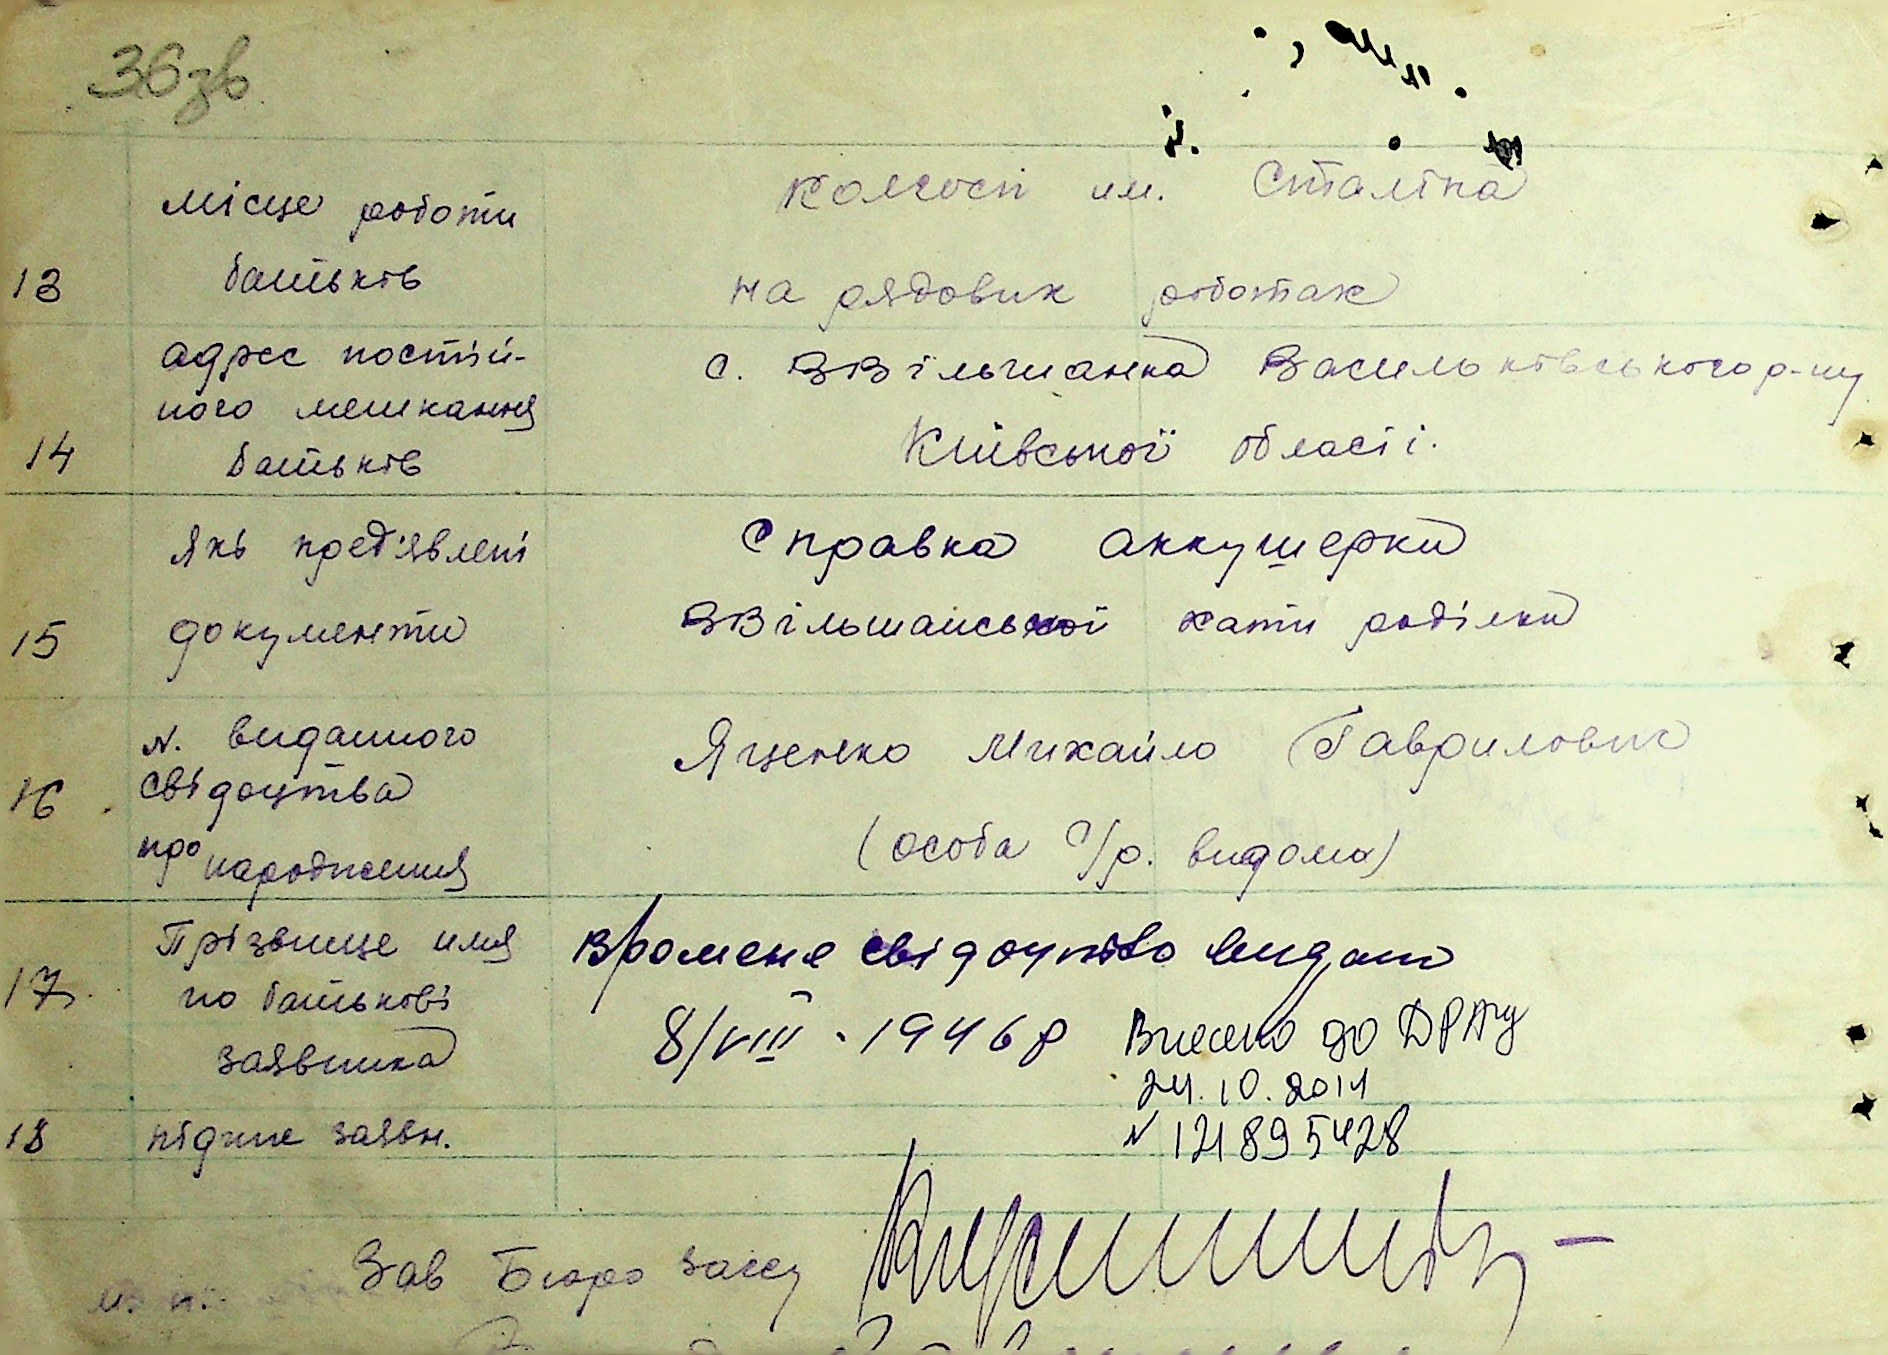 36 зв
Місце роботи
батьків
13
Колгосп им. Сталіна
на рядових роботах
адрес постій-
ного мешкання
батьків
14
с. ЗВільшанка Васильківського р-ну
Київської області.
Які пред'явлені
документи
15
Справка аккушерки
ЗВільшанської хати роділки
N. виданного
свідоцтва
про народження
16
Яценко Михайло Гаврилович
(особа с/р. видома)
Прізвище имя
по батькові
заявника
17
Времене свідоцтво видано
8/VIII - 1946 р
Внесено до ДРАЦу
24.10.2011
N 121895428
18
підпис заявн.
Зав Бюро загсу
м. п.